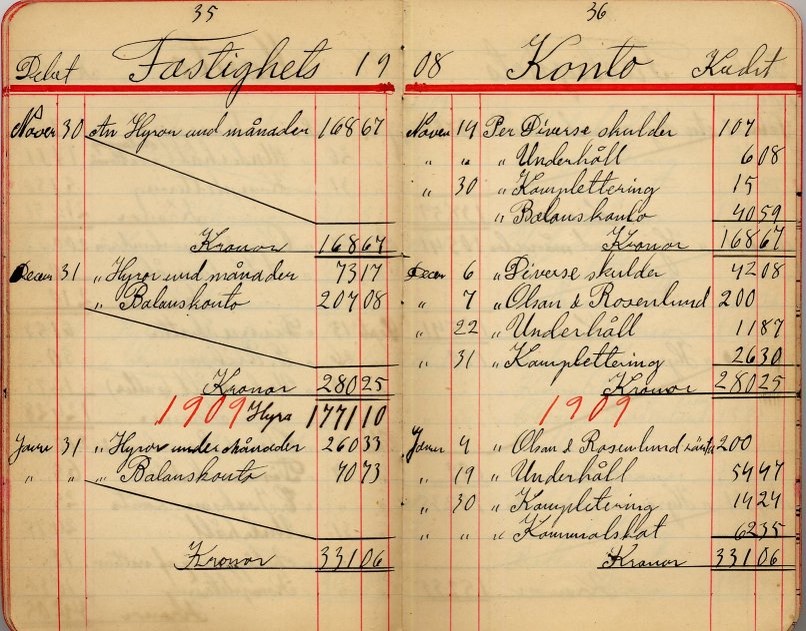 35
Debet Fastighets 19
Novem 30 An Hyror und månader 168 67
Kronor 168 67
Decem 31 " Hyror und månader 73 17
" Balanskonto 207 08
Kronor 280 25
1909 Hyra 1771 10
Janr 31 " Hyror under månader 260 33
" " " Balanskonto 70 73
Kronor 331 06
36
08 Konto Kredit
Novem 14 Per Diverse skulder 107
" " " Underhåll 6 08
" 30 " Komplettering 15
" Balanskonto 40 59
Kronor 168 67
Decem 6 " Diverse skulder 42 08
" 7 " Olsan & Rosenlund 200
" 22 " Underhåll 11 87
" 31 " Komplettering 26 30
Kronor 280 25
1909
4 " Olsan & Rosenlund ränta 200
" 19 " Underhåll 54 47
" 30 " Kompletering 14 24
" " " Kommunalskat 62 35
Kronor 331 06